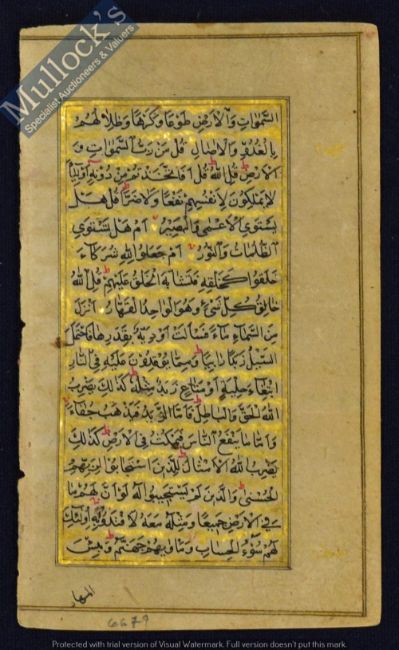 Mullock's
Specialist Auctioneers & Valuers
السموات والارض طوعا وكرها وظلالهم
بالغدو والاصال قل من رب السموات و
الارض قل الله قل افاتخذتم من دونه اولياء
لا يملكون لانفسهم نفعا ولا ضرا قل هل
يستوي الاعمى والبصير ام هل تستوي
الظلمات والنور ام جعلوا لله شركاء
خلقوا كخلقه فتشابه الخلق عليهم قل الله
خالق كل شيء وهو الواحد القهار انزل
من السماء ماء فسالت اودية بقدرها فاحتمل
السيل زبدا رابيا ومما يوقدون عليه في النار
ابتغاء حلية او متاع زبد مثله كذلك يضرب
الله الحق والباطل فاما الزبد فيذهب جفاء
واما ما ينفع الناس فيمكث في الارض كذلك
يضرب الله الامثال للذين استجابوا لربهم
الحسنى والذين لم يستجيبوا له لو ان لهم ما
في الارض جميعا ومثله معه لافتدوا به اولئك
لهم سوء الحساب وماويهم جهنم وبئس
المهاد
6679
Protected with trial version of Visual Watermark. Full version doesn't put this mark.